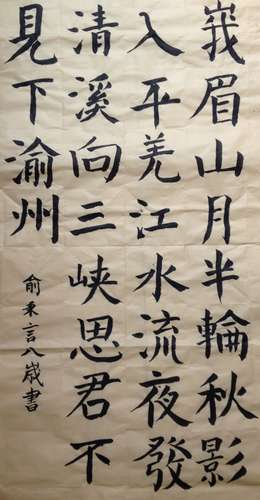 峩眉山月半輪秋影
入平羌江水流夜發
清溪向三峽思君不
見下渝州
俞秉言八歲書